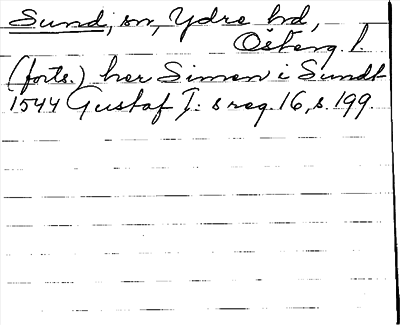 Sund, sn, Ydre hd,
Österg. l.
(forts.) her Simon i Sundt
1544 Gustaf I: s reg. 16, s. 199.